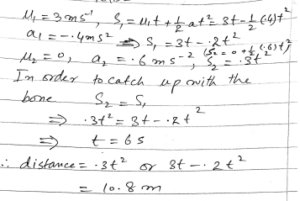 u₁ = 3 ms⁻¹, S₁ = u₁t + ½at² = 3t - ½(.4)t²
a₁ = -.4ms⁻² ⇒ S₁ = 3t - .2t²
u₂ = 0, a₂ = .6 ms⁻² (S₂ = 0 + ½(.6)t²) S₂ = .3t²
In order to catch up with the
bone S₂ = S₁
⇒ .3t² = 3t - .2t²
⇒ t = 6s
∴ distance = .3t² or 3t - .2t²
= 10.8 m